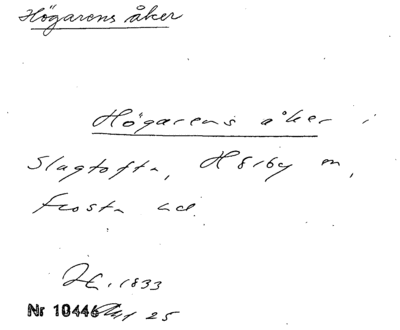 Högarens åker
Högarens åker i
Slagtofta, Hörby sn,
Frosta hd.
1833
Nr 10446 25